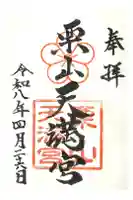 奉拝
栗山天満宮
令和八年四月二十六日